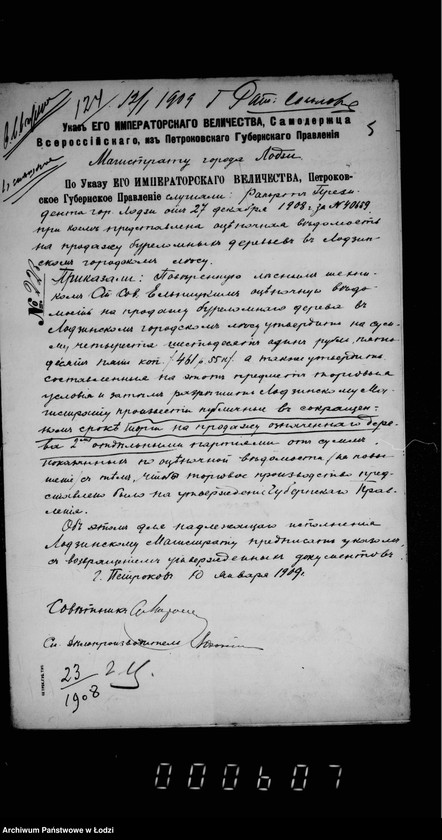 124 / 12/1 1909 г.
5
Указъ ЕГО ИМПЕРАТОРСКАГО ВЕЛИЧЕСТВА, Самодержца
Всероссійскаго, изъ Петроковскаго Губернскаго Правленія
Магистрату города Лодзи
По Указу ЕГО ИМПЕРАТОРСКАГО ВЕЛИЧЕСТВА, Петроков-
ское Губернское Правленіе слушали: Рапортъ Прези-
дента гор. Лодзи отъ 27 декабря 1908 г. за №
при коемъ представлена оцѣночная вѣдомость
на продажу буреломныхъ деревьевъ въ Лодзин-
скомъ городскомъ лѣсу.
№ 228
Приказали: Повѣренную лѣснымъ
оцѣночную вѣдо-
мость на продажу буреломнаго дерева въ
Лодзинскомъ городскомъ лѣсу утвердить на сум-
му четыреста шестьдесятъ одинъ рубль пять-
десятъ пять коп. /461 р. 55 к./ а также утвердить
составленныя на этотъ предметъ торговыя
условія и затѣмъ разрѣшить Лодзинскому Ма-
гистрату произвести публичные въ сокращен-
номъ срокѣ торги на продажу означеннаго дере-
ва 2мя отдѣльными партіями отъ суммъ
показанныхъ по оцѣночной вѣдомости /на повы-
шеніе/ съ тѣмъ, чтобы торговое производство пред-
ставлено было на утвержденіе Губернскаго Прав-
ленія.
Объ этомъ для надлежащаго исполненія
Лодзинскому Магистрату предписать указомъ,
съ возвращеніемъ утвержденныхъ документовъ.
г. Петроковъ 10 Января 1909 г.
Совѣтникъ
Дѣлопроизводителя
23/1908
000607
Archiwum Państwowe w Łodzi